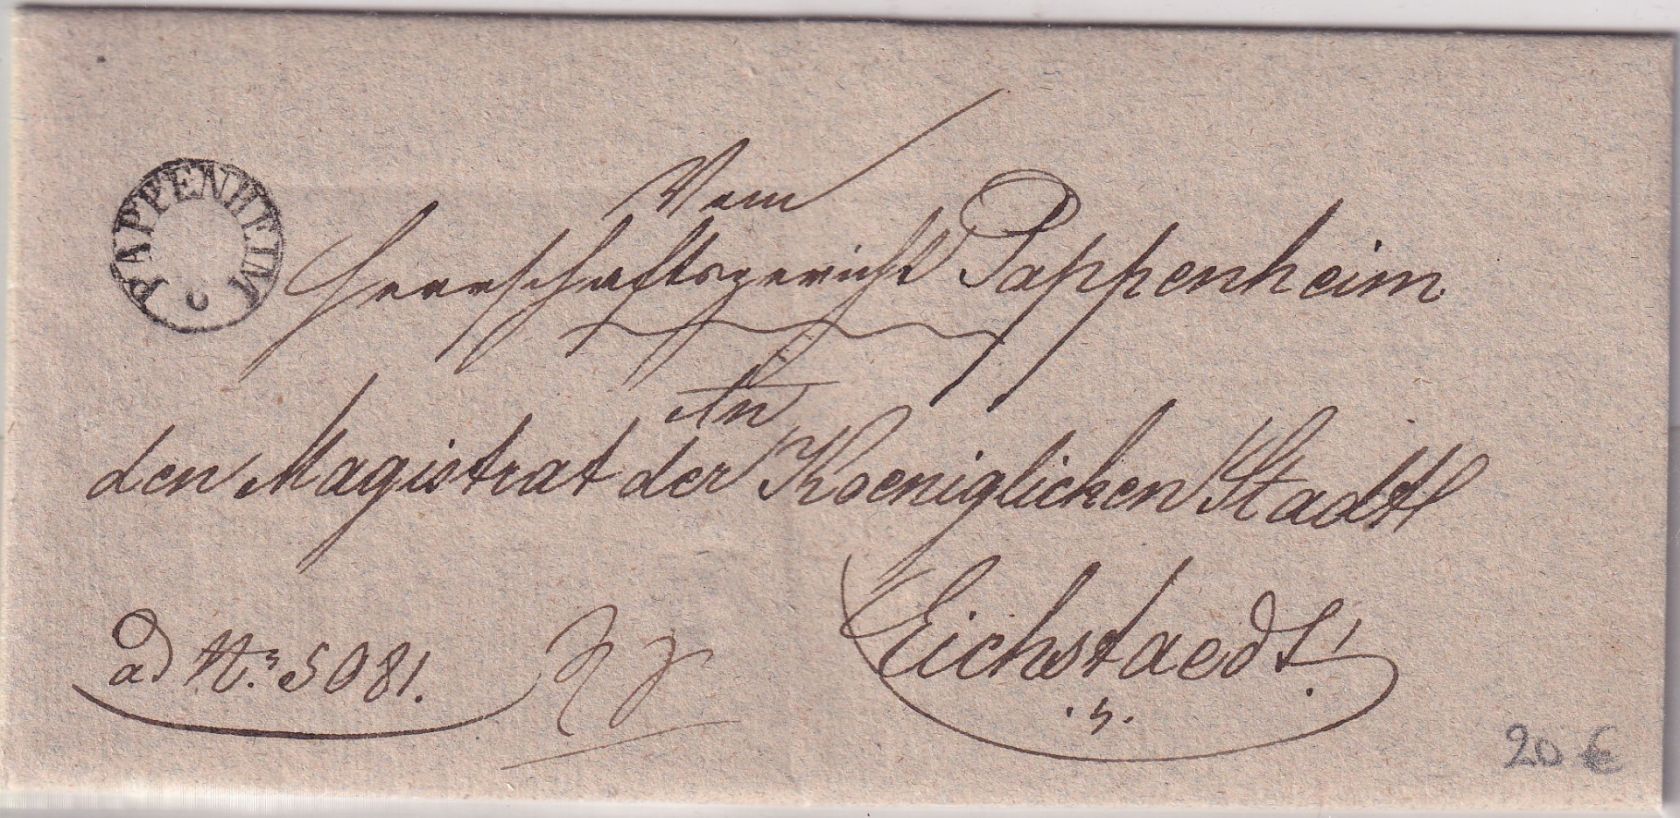 PAPPENHEIM
Vom
Herrschaftsgericht Pappenheim
An
den Magistrat der Koeniglichen Stadt
Eichstaedt!
ad N: 5081.
20 €